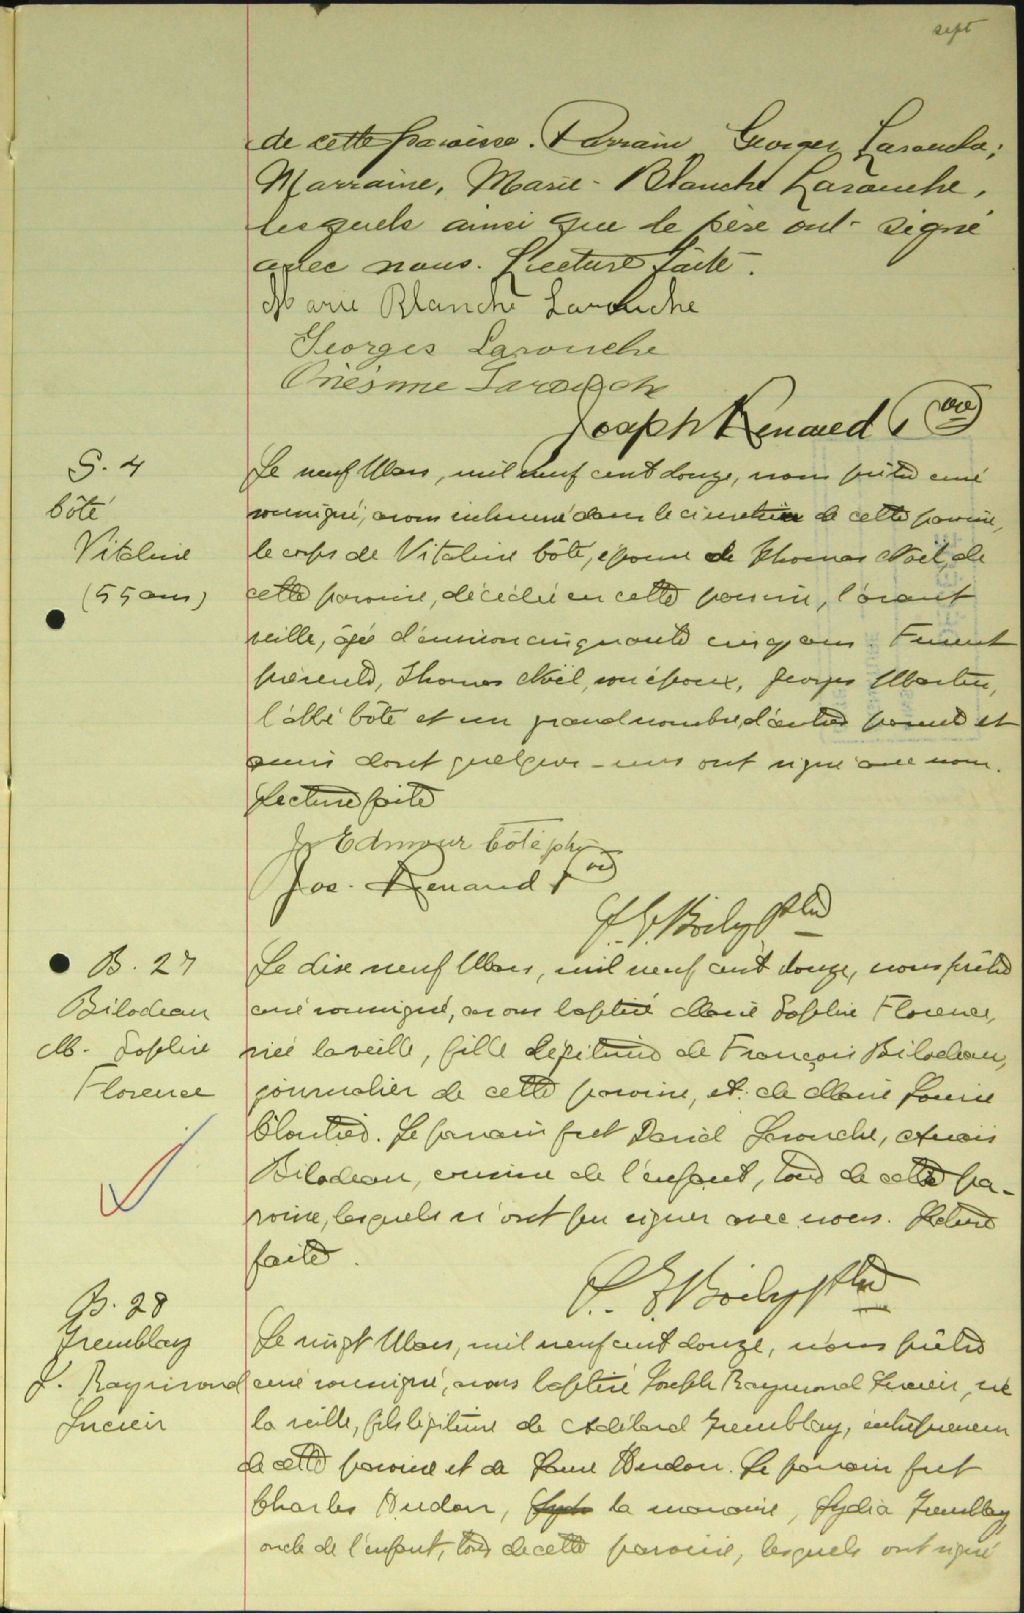 sept
de cette paroisse. Parrain Georges Larouche;
Marraine, Marie-Blanche Larouche,
lesquels ainsi que le père ont signé
avec nous. Lecture faite.
Marie Blanche Larouche
Georges Larouche
Onésime Larouche
Joseph Renaud, ptre
S. 4
Côté
Vitaline
(55 ans)
Le neuf Mars, mil neuf cent douze, nous prêtre curé
soussigné, avons inhumé dans le cimetière de cette paroisse,
le corps de Vitaline Côté, épouse de Thomas Noël, de
cette paroisse, décédée en cette paroisse, l'avant
veille, âgée d'environ cinquante cinq ans. Furent
présents, Thomas Noël, son époux, Georges Martin,
l'abbé Côté et un grand nombre d'autres parents et
amis dont quelques-uns ont signé avec nous.
Lecture faite
J. Edmour Côté ptre
Jos. Renaud ptre
J. E. Boily Ptre
B. 27
Bilodeau
M. Sophie
Florence
Le dix neuf Mars, mil neuf cent douze, nous prêtre
curé soussigné, avons baptisé Marie Sophie Florence,
née la veille, fille légitime de François Bilodeau,
journalier de cette paroisse, et de Marie Louise
Cloutier. Le parrain fut David Larouche,
Bilodeau, cousine de l'enfant, tous de cette pa-
roisse, lesquels n'ont pu signer avec nous. Lecture
faite.
J. E. Boily Ptre
B. 28
Tremblay
J. Raymond
Lucien
Le vingt Mars, mil neuf cent douze, nous prêtre
curé soussigné, avons baptisé Joseph Raymond Lucien, né
la veille, fils légitime de Adélard Tremblay, entrepreneur
de cette paroisse et de Laure Dudon. Le parrain fut
Charles Dudon, la marraine, Lydia Tremblay,
oncle de l'enfant, tous de cette paroisse, lesquels ont signé